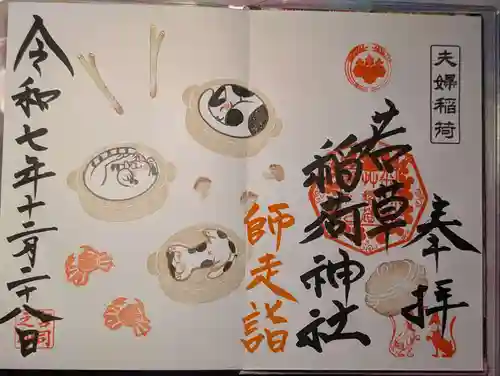 夫婦稲荷
奉拝
若草
稲荷神社
師走詣
令和七年十二月二十八日